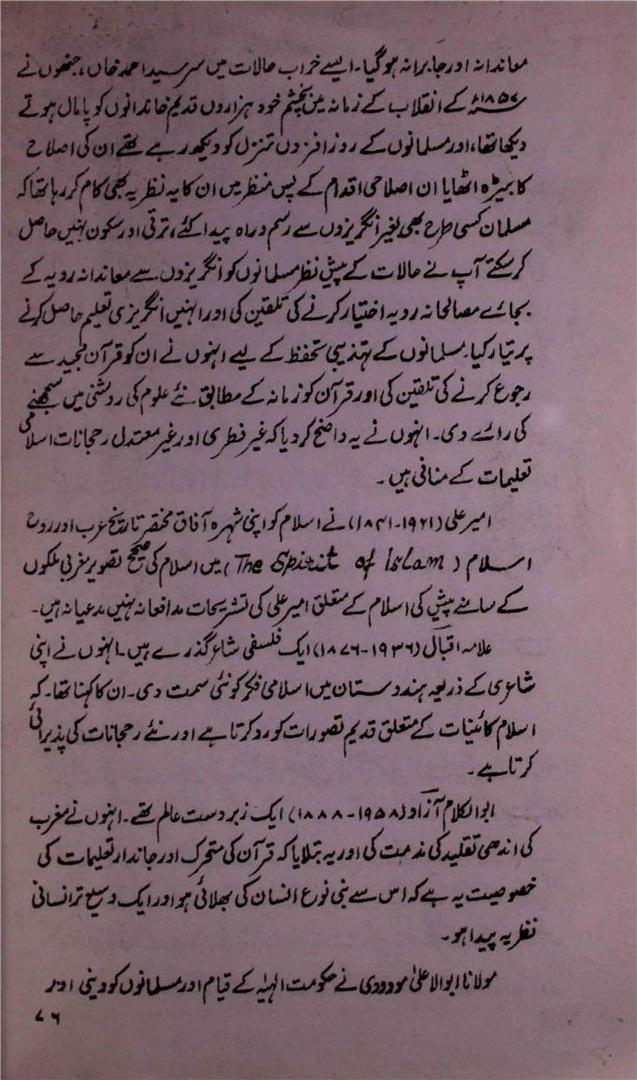 معاندانہ اور جابرانہ ہوگیا۔ ایسے خراب حالات میں سرسید احمد خاں، جنھوں نے
۱۸۵۷ء کے انقلاب کے زمانہ میں بچشم خود ہزاروں قدیم خاندانوں کو پامال ہوتے
دیکھا تھا، اور مسلمانوں کے روز افزوں تنزل کو دیکھ رہے تھے ان کی اصلاح
کا بیڑہ اٹھایا ان اصلاحی اقدام کے پس منظر میں ان کا یہ نظریہ بھی کام کر رہا تھا کہ
مسلمان کسی طرح بھی بغیر انگریزوں سے رسم و راہ پیدا کئے، ترقی اور سکون نہیں حاصل
کر سکتے آپ نے حالات کے پیش نظر مسلمانوں کو انگریزوں سے معاندانہ رویہ کے
بجائے مصالحانہ رویہ اختیار کرنے کی تلقین کی اور انہیں انگریزی تعلیم حاصل کرنے
پر تیار کیا۔ مسلمانوں کے تہذیبی تحفظ کے لیے انہوں نے ان کو قرآن مجید سے
رجوع کرنے کی تلقین کی اور قرآن کو زمانہ کے مطابق نئے علوم کی روشنی میں سمجھنے
کی رائے دی۔ انہوں نے یہ واضح کر دیا کہ غیر فطری اور غیر معتدل رحجانات اسلامی
تعلیمات کے منافی ہیں۔
امیر علی (۱۹۲۱-۱۸۴۱) نے اسلام کو اپنی شہرہ آفاق مختصر تاریخ عرب اور روح
اسلام (The Spirit of Islam) میں اسلام کی صحیح تصویر مغربی ملکوں
کے سامنے پیش کی اسلام کے متعلق امیر علی کی تشریحات مدافعانہ نہیں مدعیانہ ہیں۔
علامہ اقبال (۱۹۳۶-۱۸۷۶) ایک فلسفی شاعر گذرے ہیں۔ انہوں نے اپنی
شاعری کے ذریعہ ہندوستان میں اسلامی فکر کو نئی سمت دی۔ ان کا کہنا تھا۔ کہ
اسلام کائنیات کے متعلق قدیم تصورات کو رد کرتا ہے اور نئے رحجانات کی پذیرائی
کرتا ہے۔
ابوالکلام آزاد (۱۹۵۸-۱۸۸۸) ایک زبردست عالم تھے۔ انہوں نے مغرب
کی اندھی تقلید کی مذمت کی اور یہ بتلایا کہ قرآن کی متحرک اور جاندار تعلیمات کی
خصوصیت یہ ہے کہ اس سے بنی نوع انسان کی بھلائی ہو اور ایک وسیع تر انسانی
نظریہ پیدا ہو۔
مولانا ابوالاعلیٰ مودودی نے حکومت الہیٰہ کے قیام اور مسلمانوں کو دینی اور
۷۶